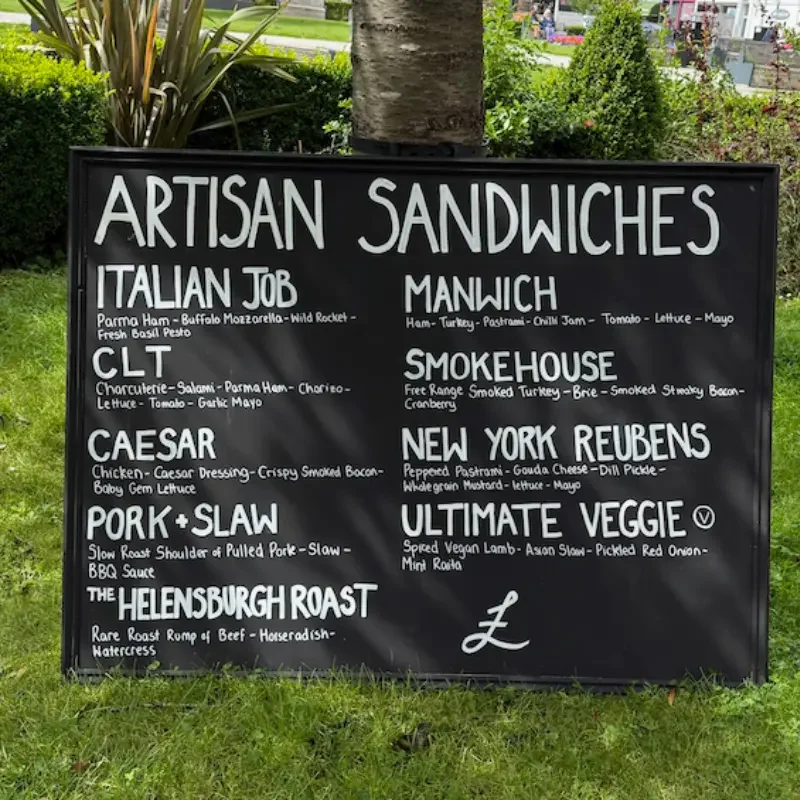 ARTISAN SANDWICHES
ITALIAN JOB
Parma Ham - Buffalo Mozzarella - Wild Rocket -
Fresh Basil Pesto
CLT
Charcuterie - Salami - Parma Ham - Chorizo -
Lettuce - Tomato - Garlic Mayo
CAESAR
Chicken - Caesar Dressing - Crispy Smoked Bacon -
Baby Gem Lettuce
PORK + SLAW
Slow Roast Shoulder of Pulled Pork - Slaw -
BBQ Sauce
THE HELENSBURGH ROAST
Rare Roast Rump of Beef - Horseradish -
Watercress
MANWICH
Ham - Turkey - Pastrami - Chilli Jam - Tomato - Lettuce - Mayo
SMOKEHOUSE
Free Range Smoked Turkey - Brie - Smoked Streaky Bacon -
Cranberry
NEW YORK REUBENS
Peppered Pastrami - Gouda Cheese - Dill Pickle -
Wholegrain Mustard - lettuce - Mayo
ULTIMATE VEGGIE Ⓥ
Spiced Vegan Lamb - Asian Slaw - Pickled Red Onion -
Mint Raita
£